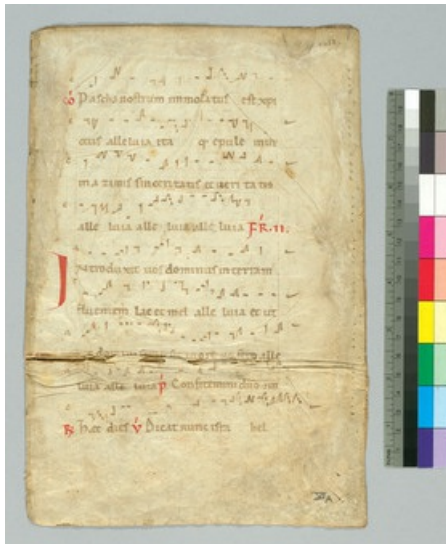 co Pascha nostrum immolatus est xpi
ctus alleluia ita q epule mur
in a zimis sinceritatis et ueri ta tis
alle luia alle luia alle luia FR.II.
Introduxit uos dominus in terram
fluentem lac et mel alle luia et ut
alle
luia alle luia p Confitemini domino
R Hec dies V Dicat nunc isra hel.